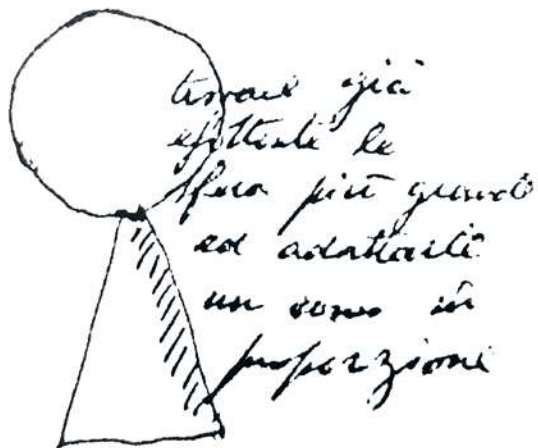 già
effettuate le
sfera più grande
ed adattarti
un cono in
proporzione